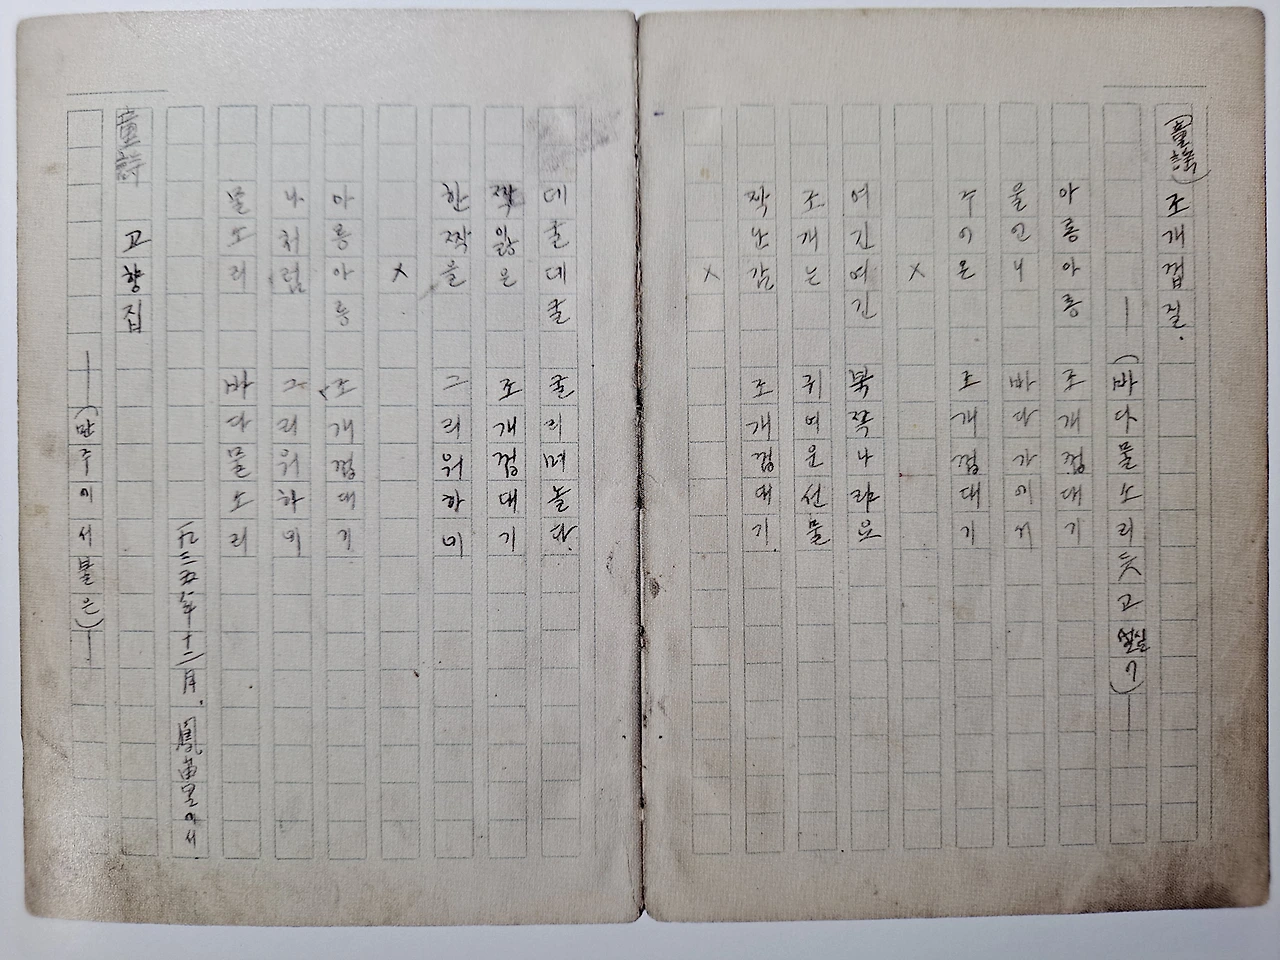 (童謠) 조개껍질.
— (바다물소리듯고싶어) —
아롱아롱 조개껍대기
울언니 바다가에서
주어온 조개껍대기
×
여긴여긴 북쪽나라요
조개는 귀여운선물
작난감 조개껍대기
×
데굴데굴 굴리며놀다.
짝잃은 조개껍대기
한짝을 그리워하네
×
아롱아롱 조개껍대기
나처럼 그리워하네
물소리 바다물소리
一九三五年十二月. 鳳峀里에서
童詩 고향집
— (만주에서불은) —